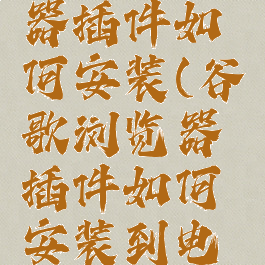 器插件如
何安装(谷
歌浏览器
插件如何
安装到电